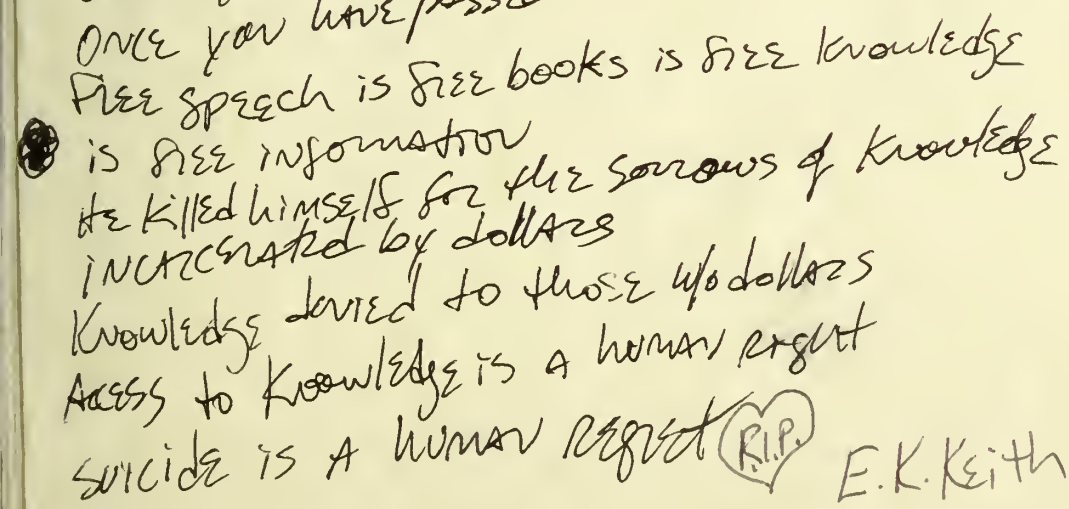 ONCE YOU HAVE
FREE SPEECH is free books is free knowledge
is free information
He killed himself for the sorrows of knowledge
incarcerated by dollars
Knowledge denied to those w/o dollars
Acess to Knowledge is a human right
suicide is a human regret R.I.P. E.K.Keith